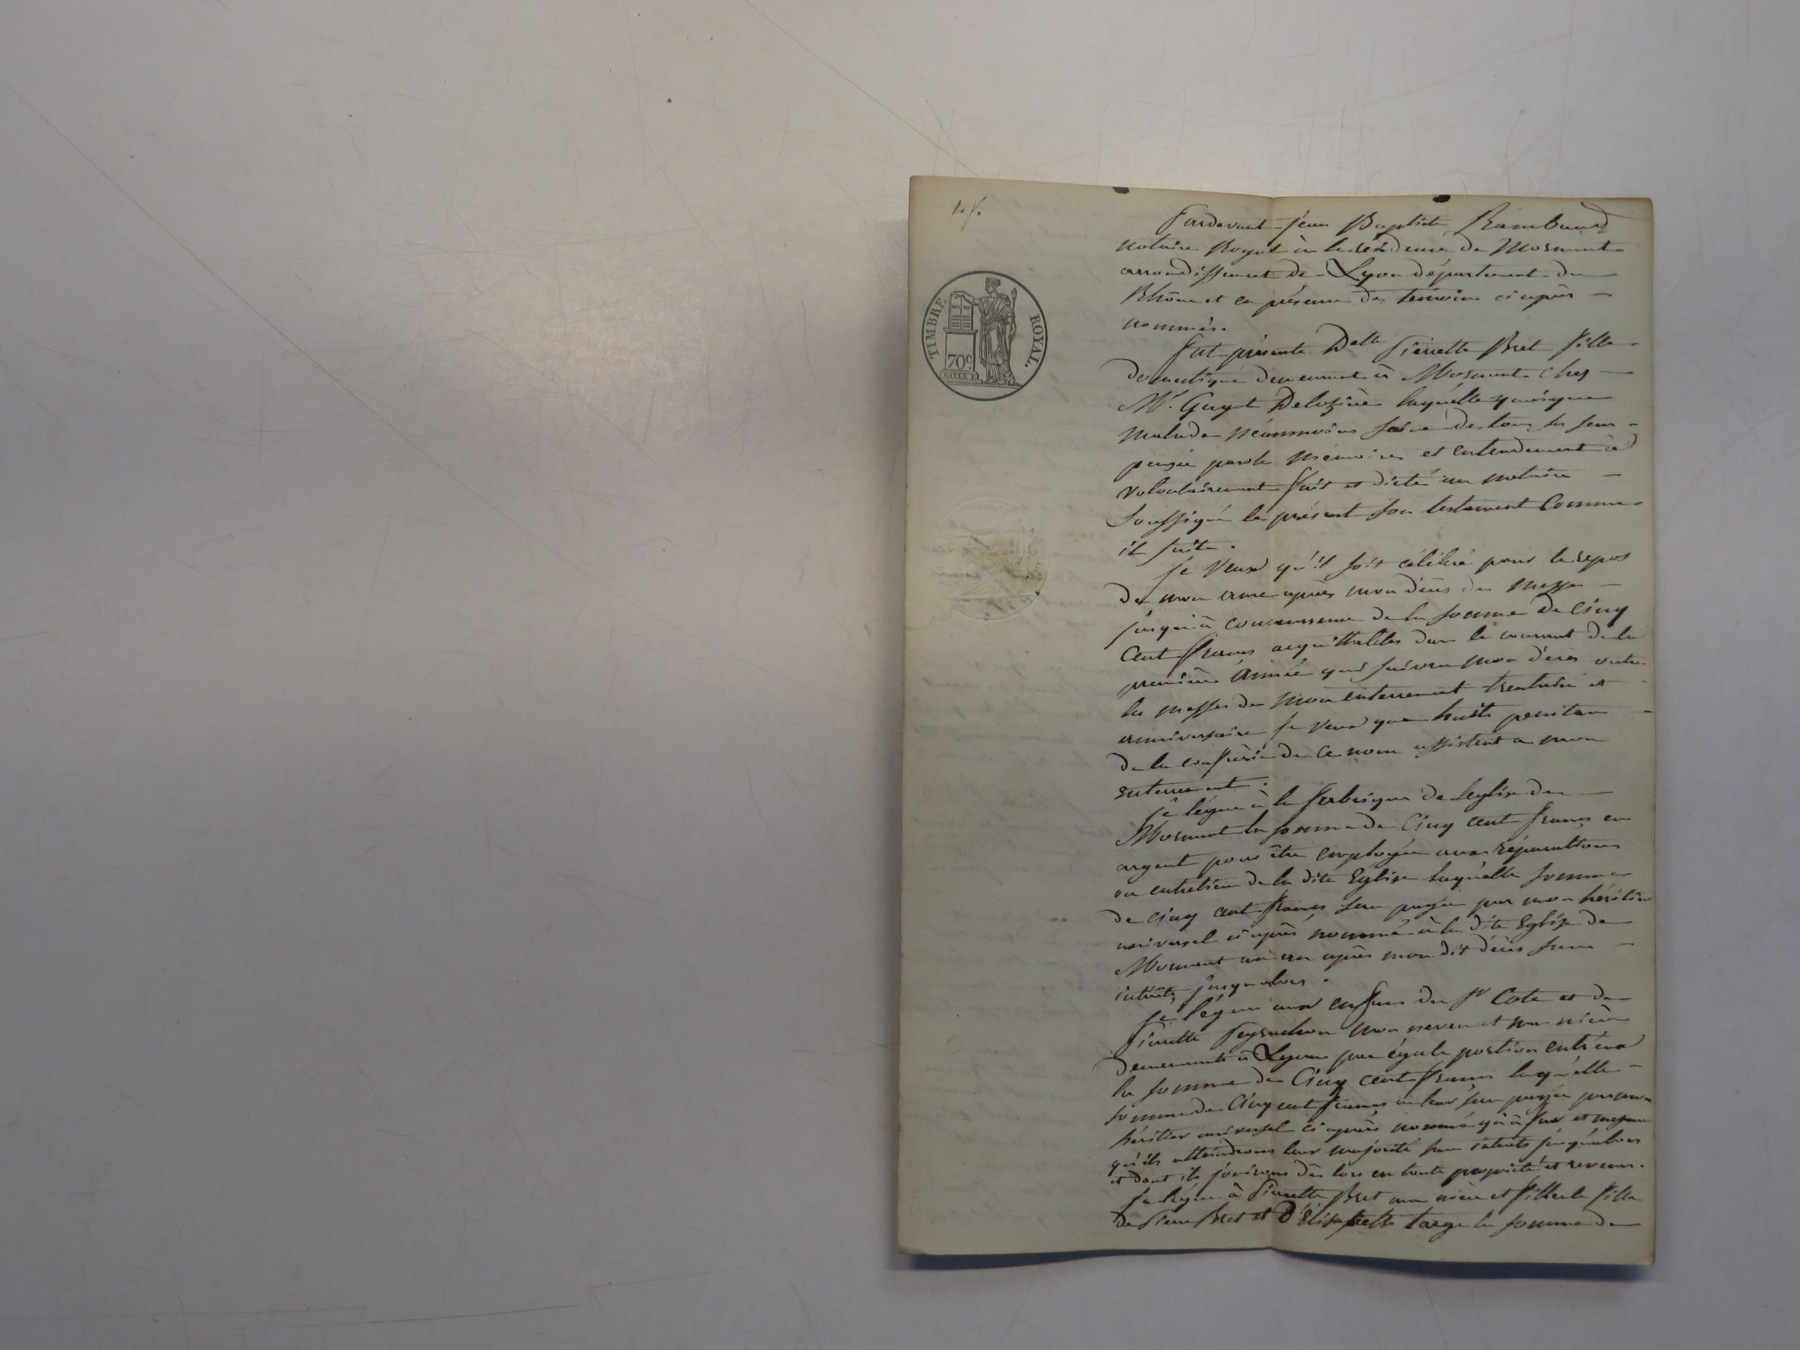 TIMBRE ROYAL.
70c
Pardevant Jean Baptiste Rambaud
notaire Royal à la résidence de Mornant
arrondissement de Lyon département du
Rhône et en présence des témoins ci après
nommés.
fut présente Delle Pierrette Bret fille
domestique demeurant à Mornant chez
Mr. Guyot Delozière laquelle quoique
malade néanmoins saine de tous ses sens
pensée parole mémoire et entendement a
volontairement fait et dicté au notaire
soussigné le présent son testament comme
il suit.
je veux qu'il soit célébré pour le repos
de mon ame après mon décès des messes
jusqu'à concurrence de la somme de cinq
cent francs acquittables dans le courant de la
première année qui suivra mon décès outre
les messes de mon enterrement trentaine et
anniversaire je veux que huit penitens
de la confrérie de ce nom assistent a mon
enterrement.
je lègue à la fabrique de l'eglise de
Mornant la somme de cinq cent francs en
argent pour être employée aux réparations
ou entretien de la dite Eglise laquelle somme
de cinq cent francs sera payée par mon héritier
universel ci après nommé à la dite Eglise de
Mornant un an après mon dit décès sans
intérêts jusqu'alors.
je lègue aux enfans du Sr Cote et de
Pierrette Peyrachon mon neveu et ma nièce
demeurants à Lyon par égale portion entr'eux
la somme de cinq cent francs laquelle
somme de cinq cent francs leur sera payée par mon
héritier universel ci après nommé qu'à fur et mesure
qu'ils atteindrons leur majorité sans intérêts jusqu'alors
et dont ils jouirons dès lors en toute propriété et revenus.
je lègue à Pierrette Bret ma nièce et filleule fille
de Pierre Bret et d'Elisabeth Targe la somme de